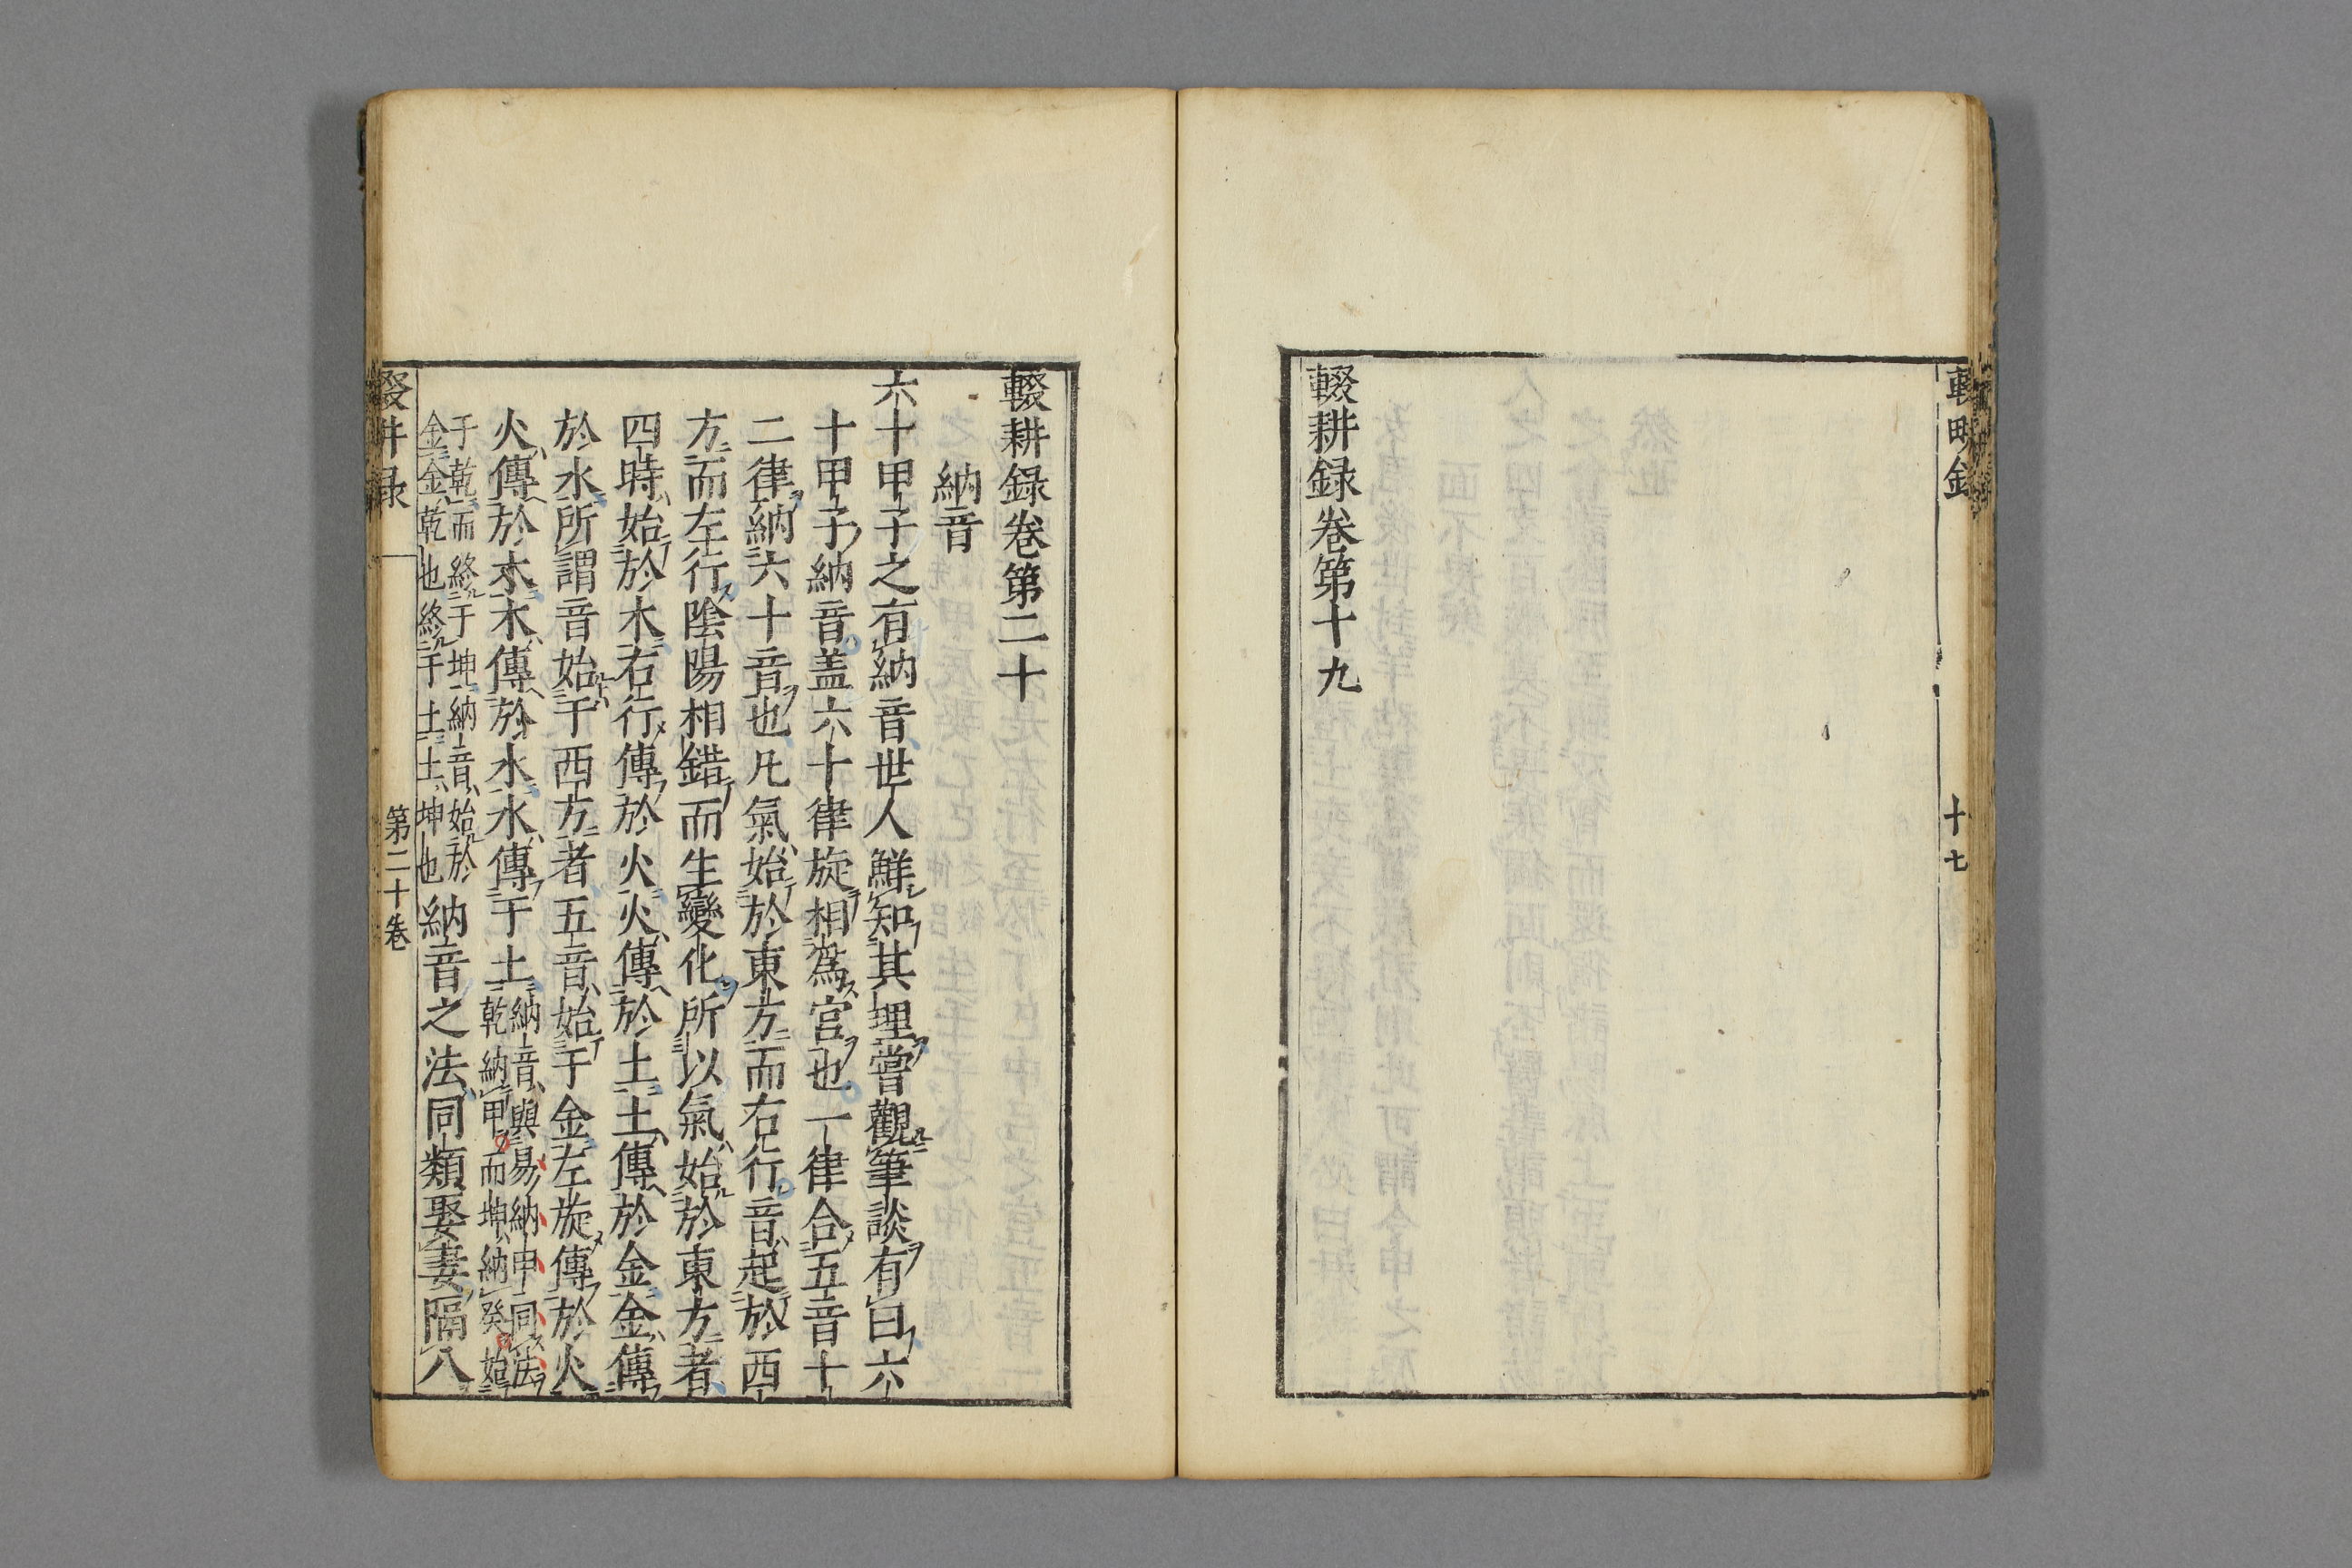 輟耕録
十七
輟耕録卷第十九
輟耕録卷第二十
納音
六十甲子之有納音世人鮮知其理嘗觀筆談有曰六
十甲子納音盖六十律旋相為宮也一律合五音十
二律納六十音也凡氣始於東方而右行音起於西
方而左行陰陽相錯而生變化所以氣始於東方者
四時始於木右行傳於火火傳於土土傳於金金傳
於水所謂音始于西方者五音始于金左旋傳於火
火傳於木木傳於水水傳于土納音與易納甲同法
乾納甲而坤納癸始
于乾而終于坤納音始於
金金乾也終于土土坤也納音之法同類娶妻隔八
輟耕録
第二十卷